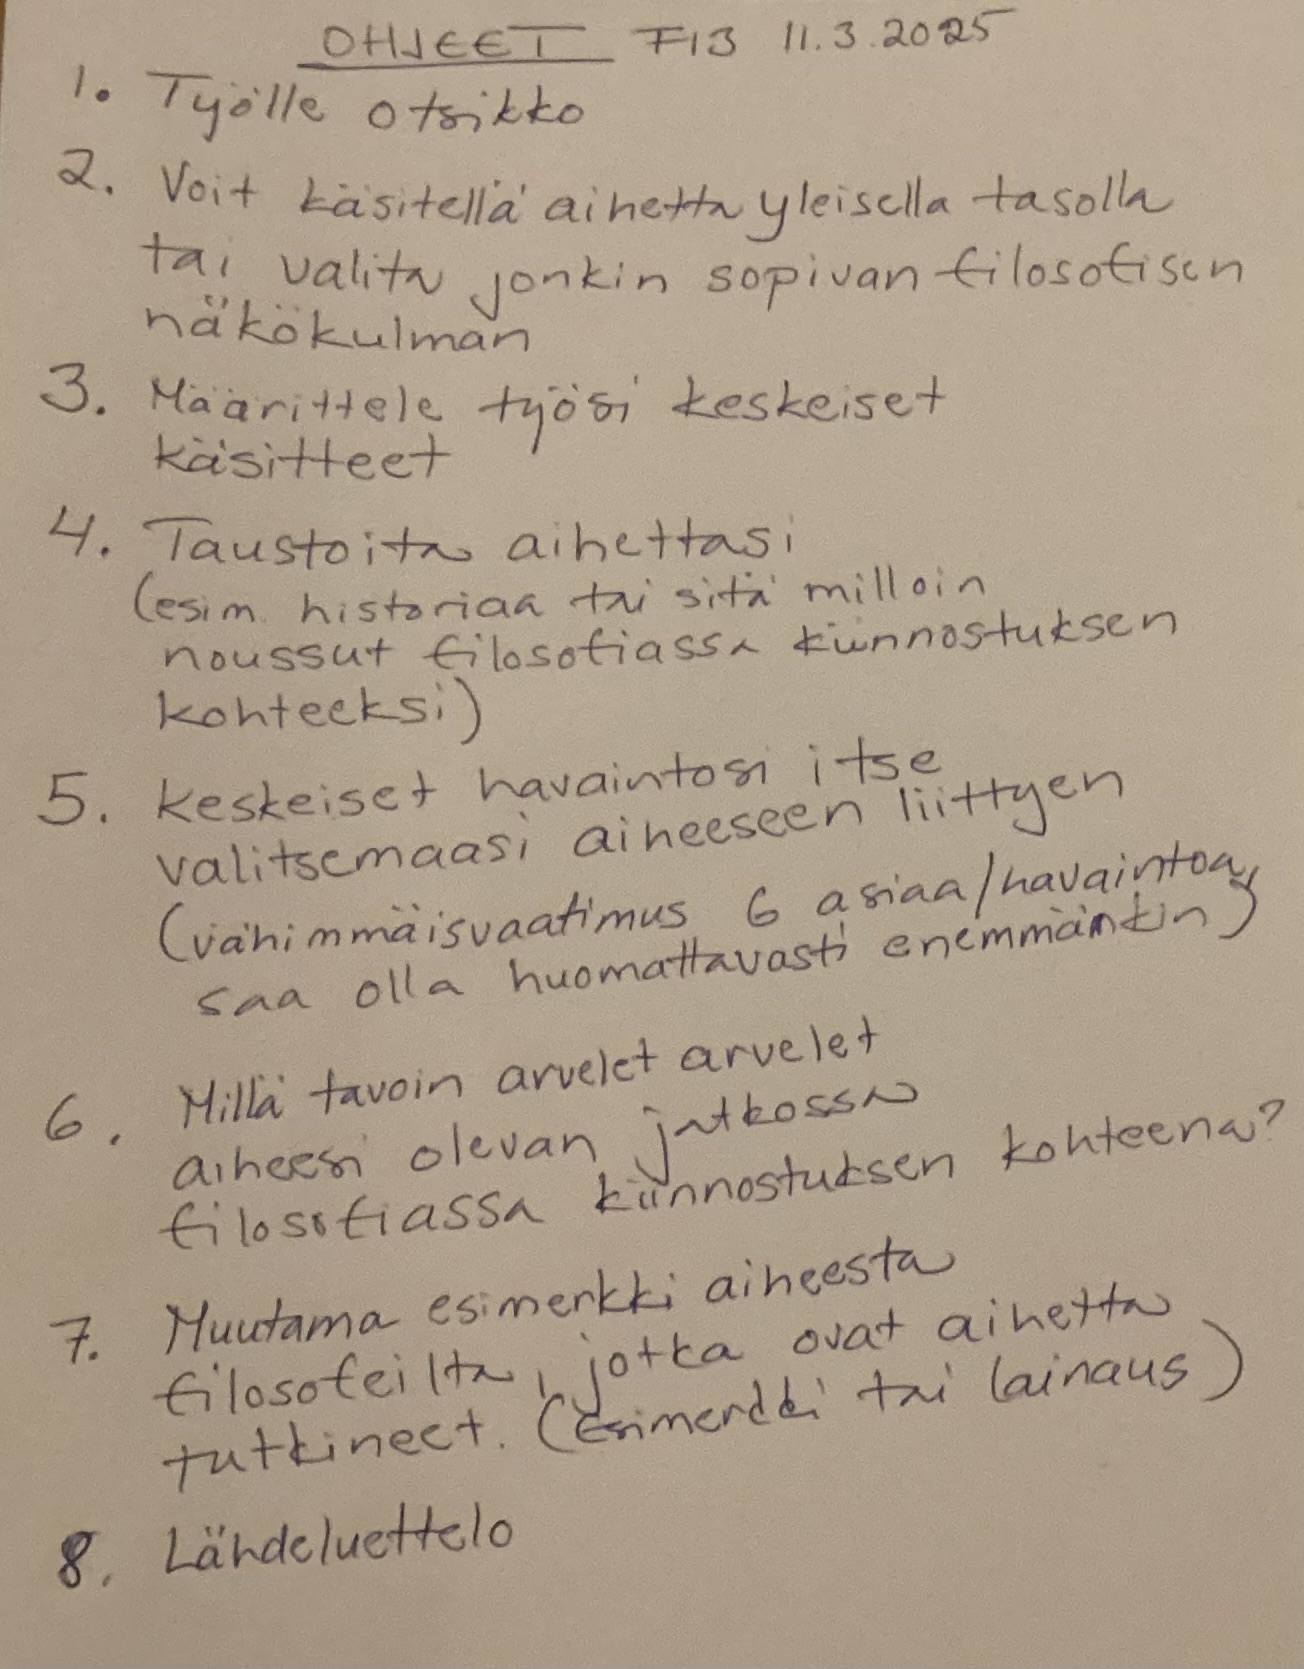 OHJEET FI3 11.3.2025
1. Työlle otsikko
2. Voit käsitellä aihetta yleisellä tasolla
tai valita jonkin sopivan filosofisen
näkökulman
3. Määrittele työsi keskeiset
käsitteet
4. Taustoita aihettasi
(esim. historiaa tai sitä milloin
noussut filosofiassa kiinnostuksen
kohteeksi)
5. Keskeiset havaintosi itse
valitsemaasi aiheeseen liittyen
(vähimmäisvaatimus 6 asiaa/havaintoa,
saa olla huomattavasti enemmänkin)
6. Millä tavoin arvelet arvelet
aiheesi olevan jatkossa
filosofiassa kiinnostuksen kohteena?
7. Muutama esimerkki aiheesta
filosofeilta, jotka ovat aihetta
tutkineet. (Esimerkki tai lainaus)
8. Lähdeluettelo